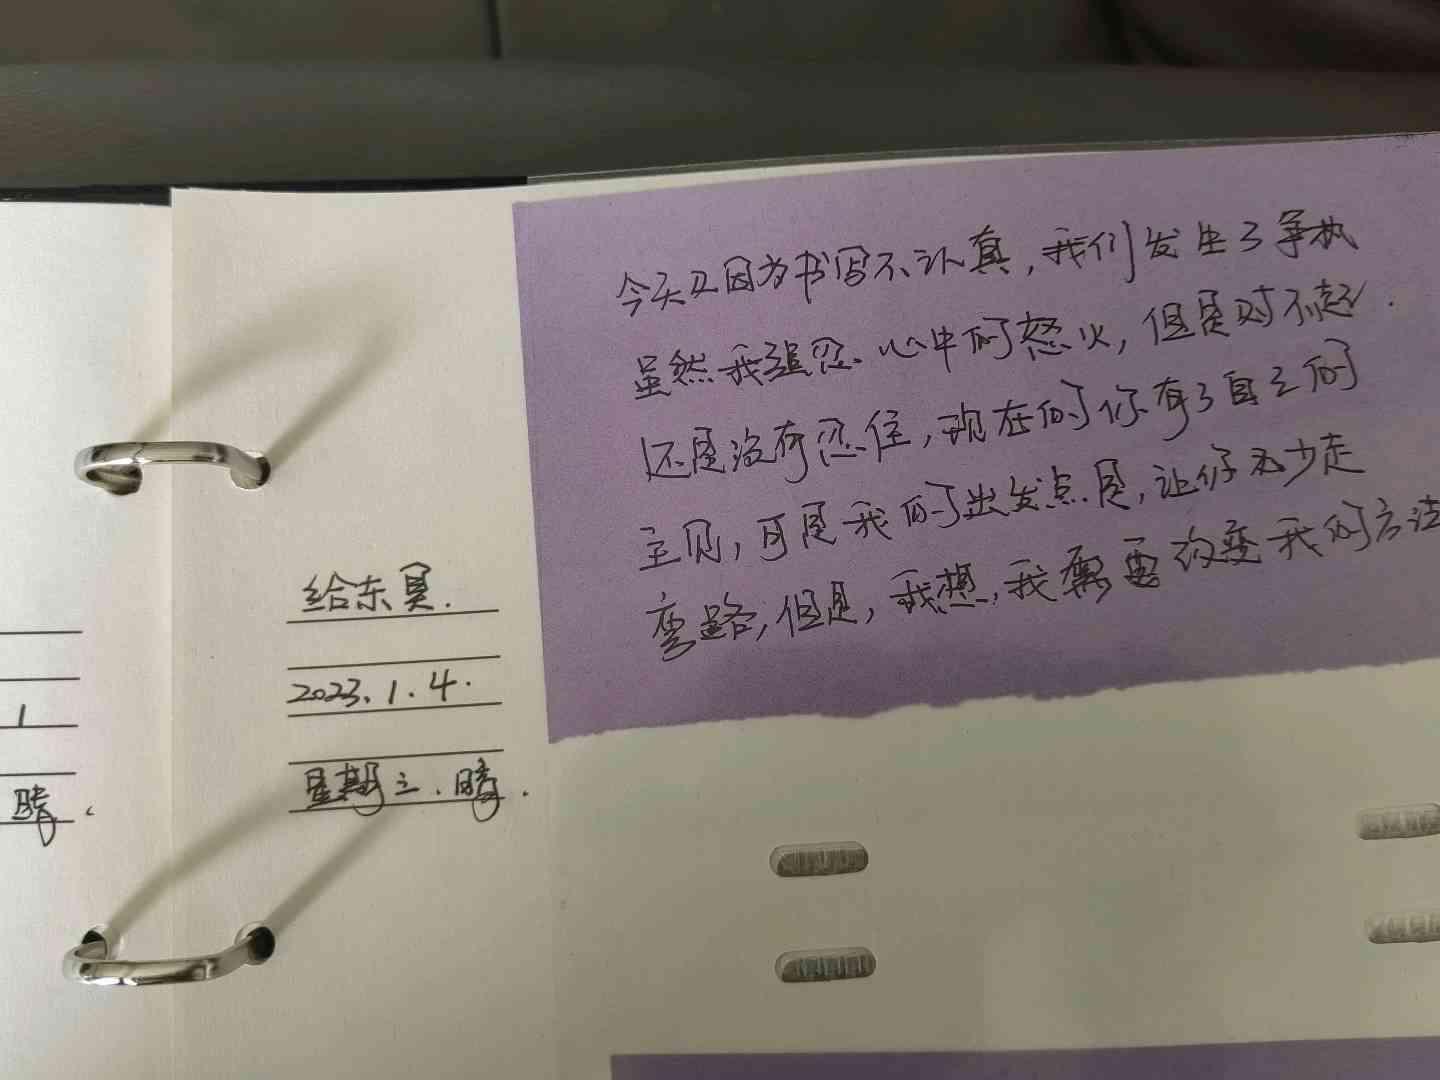 今天又因为书写不认真，我们发生了争执
虽然我强忍心中的怒火，但是对不起.
还是没有忍住，现在的你有了自主的
主见，可是我的出发点是，让你少走
弯路，但是，我想，我需要改变我的方法
给东
2023.1.4.
星期三.晴.
1
晴.